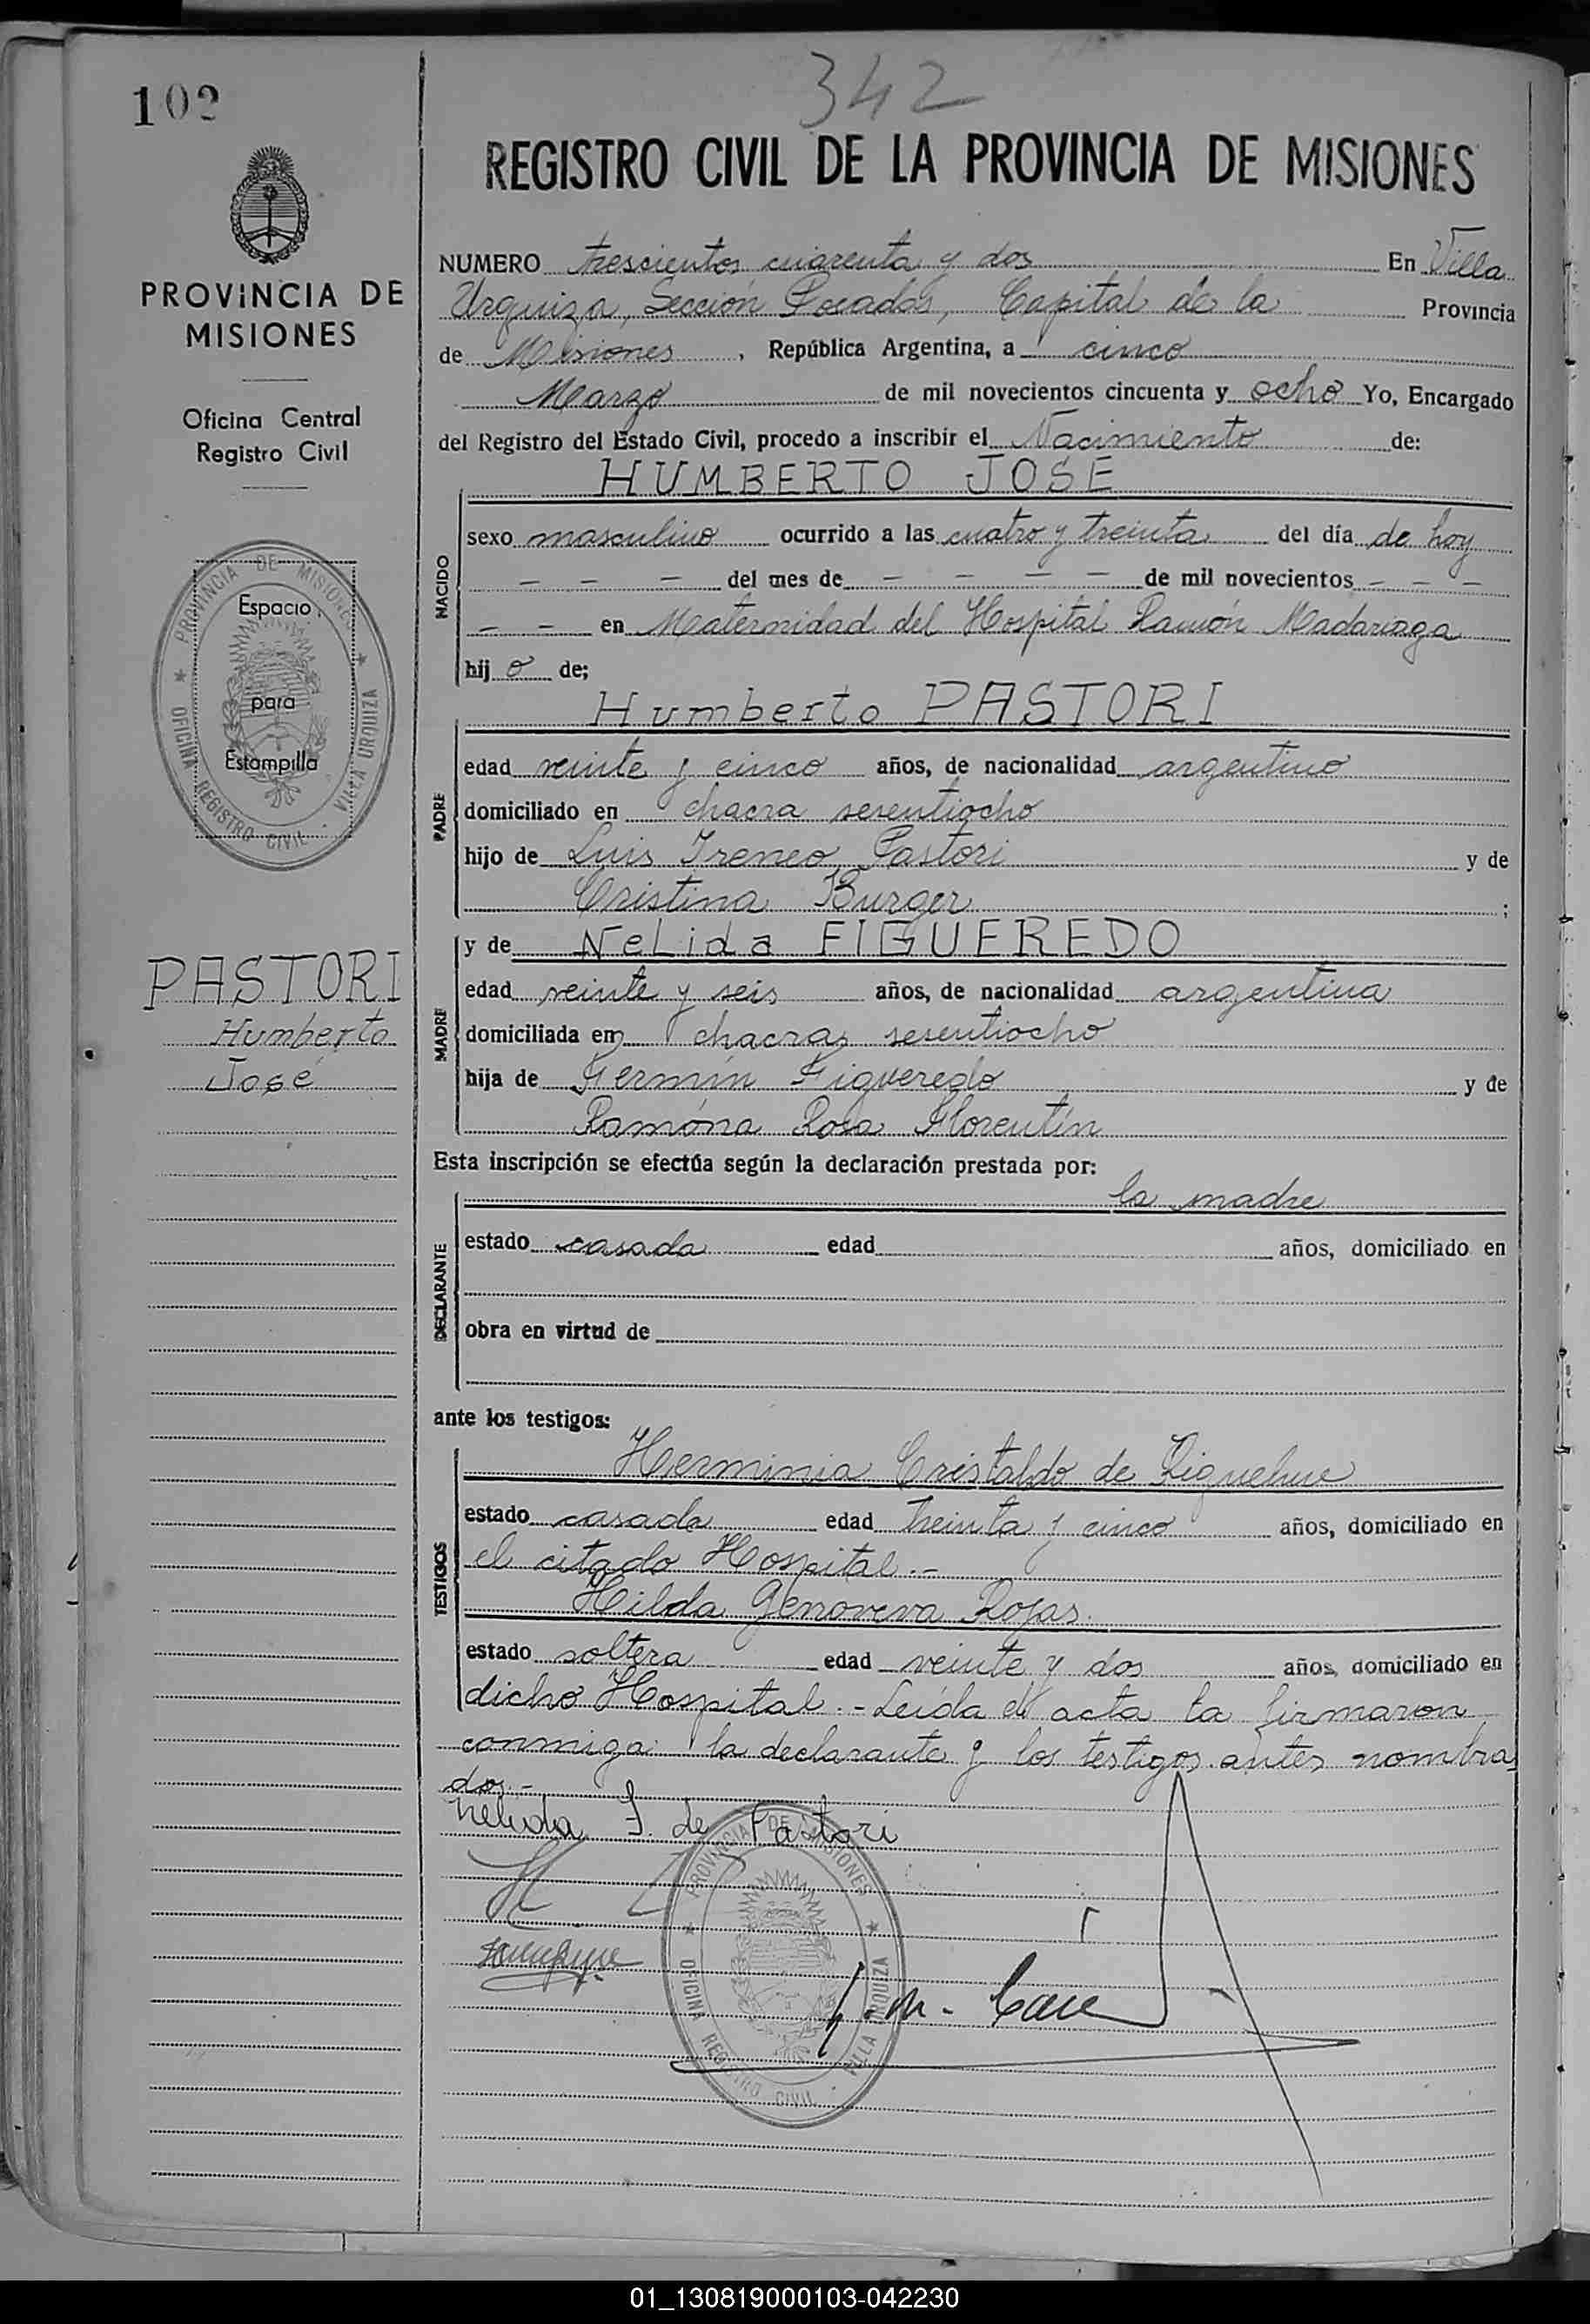 342
102
REGISTRO CIVIL DE LA PROVINCIA DE MISIONES
PROVINCIA DE
MISIONES
Oficina Central
Registro Civil
PROVINCIA DE MISIONES
OFICINA REGISTRO CIVIL - VILLA URQUIZA
Espacio
para
Estampilla
PASTORI
Humberto
José
NUMERO trescientos cuarenta y dos En Villa
Urquiza, Sección Posadas, Capital de la Provincia
de Misiones, República Argentina, a cinco
Marzo de mil novecientos cincuenta y ocho Yo, Encargado
del Registro del Estado Civil, procedo a inscribir el Nacimiento de:
HUMBERTO JOSÉ
NACIDO
sexo masculino ocurrido a las cuatro y treinta del día de hoy
- - - del mes de - - - - de mil novecientos - - -
- - en Maternidad del Hospital Ramón Madariaga
hijo de;
Humberto PASTORI
PADRE
edad veinte y cinco años, de nacionalidad argentino
domiciliado en chacra sesentiocho
hijo de Luis Ireneo Pastori y de
Cristina Burger;
y de Nelida FIGUEREDO
MADRE
edad veinte y seis años, de nacionalidad argentina
domiciliada en chacra sesentiocho
hija de Fermín Figueredo y de
Ramóna Rosa Florentín
Esta inscripción se efectúa según la declaración prestada por:
la madre
DECLARANTE
estado casada edad años, domiciliado en
obra en virtud de
ante los testigos:
Herminia Cristaldo de
TESTIGOS
estado casada edad treinta y cinco años, domiciliado en
el citado Hospital.-
Hilda Genoveva Rojas.
estado soltera edad veinte y dos años, domiciliado en
dicho Hospital.- Leída el acta la firmaron
conmigo la declarante y los testigos antes nombra
dos.-
Nelida F. de Pastori
PROVINCIA DE MISIONES
OFICINA REGISTRO CIVIL - VILLA URQUIZA
01_130819000103-042230